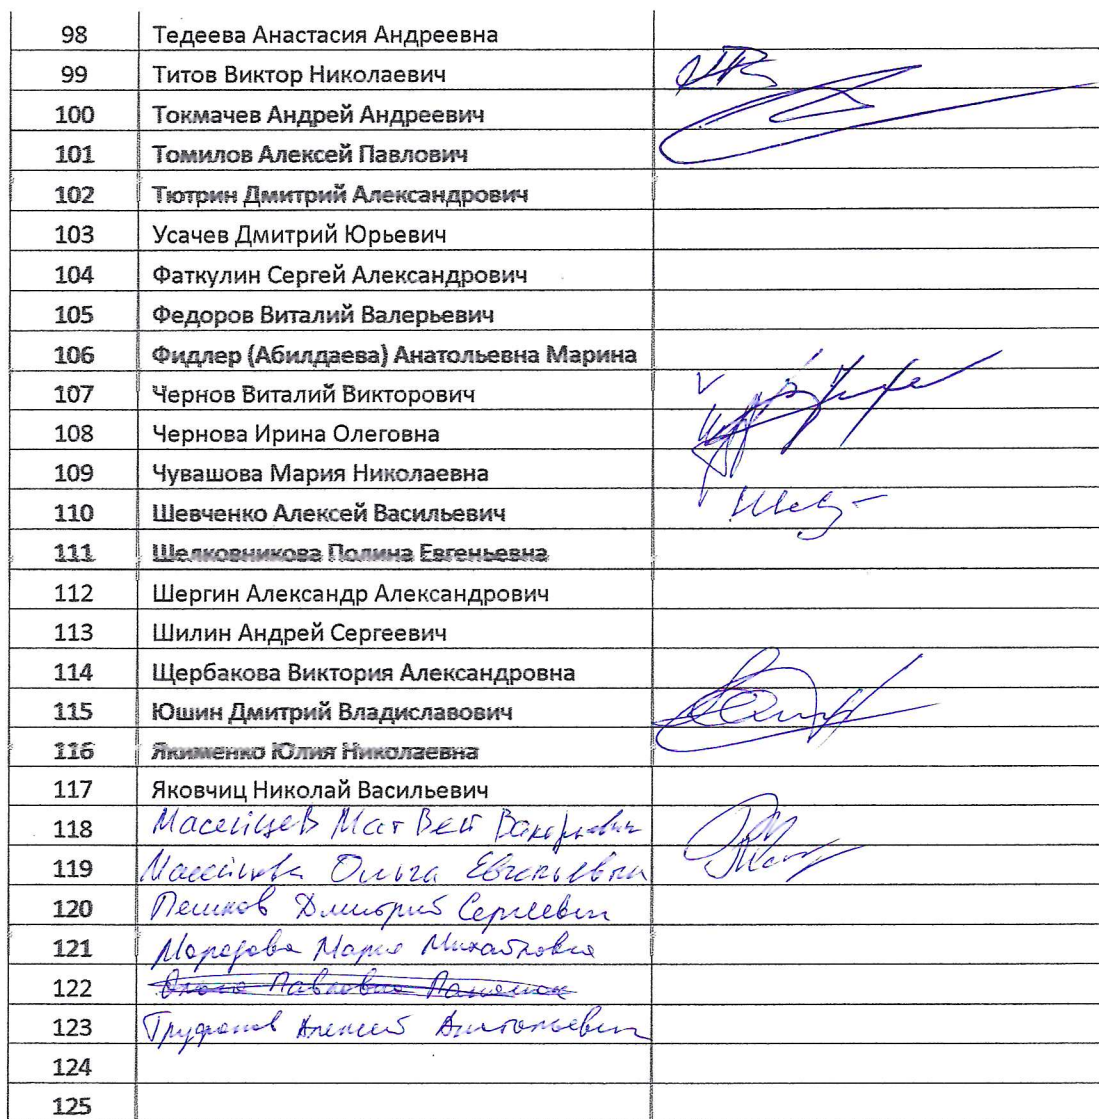 98 Тедеева Анастасия Андреевна
99 Титов Виктор Николаевич
100 Токмачев Андрей Андреевич
101 Томилов Алексей Павлович
102 Тютрин Дмитрий Александрович
103 Усачев Дмитрий Юрьевич
104 Фаткулин Сергей Александрович
105 Федоров Виталий Валерьевич
106 Фидлер (Абилдаева) Анатольевна Марина
107 Чернов Виталий Викторович
108 Чернова Ирина Олеговна
109 Чувашова Мария Николаевна
110 Шевченко Алексей Васильевич
111 Шелковникова Полина Евгеньевна
112 Шергин Александр Александрович
113 Шилин Андрей Сергеевич
114 Щербакова Виктория Александровна
115 Юшин Дмитрий Владиславович
116 Якименко Юлия Николаевна
117 Яковчиц Николай Васильевич
118 Матвей
119 Ольга Евгеньевна
120 Пешков Дмитрий Сергеевич
121 Мария Михайловна
122 Павловна
123 Труфанов Алексей Анатольевич
124
125